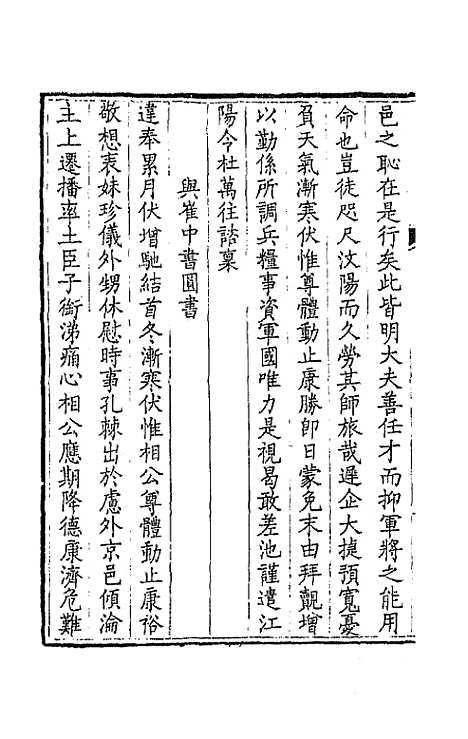 邑之恥在是行矣此皆明大夫善任才而抑軍將之能用
命也豈徒咫尺汶陽而久勞其師旅哉遲企大捷預寬憂
負天氣漸寒伏惟尊體動止康勝卽日蒙免末由拜覿增
以勤係所調兵糧事資軍國唯力是視曷敢差池謹遣江
陽令杜萬往諮稟
與崔中書圓書
違奉累月伏增馳結首冬漸寒伏惟相公尊體動止康裕
敬想表妹珍儀外甥休慰時事孔棘出於慮外京邑傾淪
主上遷播率土臣子銜涕痛心相公應期降德康濟危難